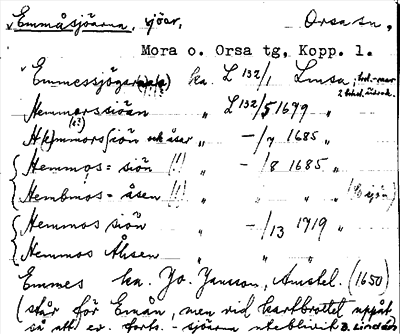 Emmåsjöarna, sjöar, Orsa sn,
Mora o. Orsa tg, Kopp. l.
Emmessjöga ka. L 132/1 Lmsa;
Hemmerssiöän " L 132/5 1679 "
siön och åser " -/7 1685 "
Hemmos= siön (!) " -/8 1685 "
Hembmos- åsen (!) " " " "
Hemmos siön " -/13 1719 "
Hemmos Åhsen " " " "
Emmes ka. Jo. Jansson, Amstel. (1650)
(står för Emån, men vid kartbrottet uppåt
så att ev. forts. - sjöarna uteblivit. B. Lindén